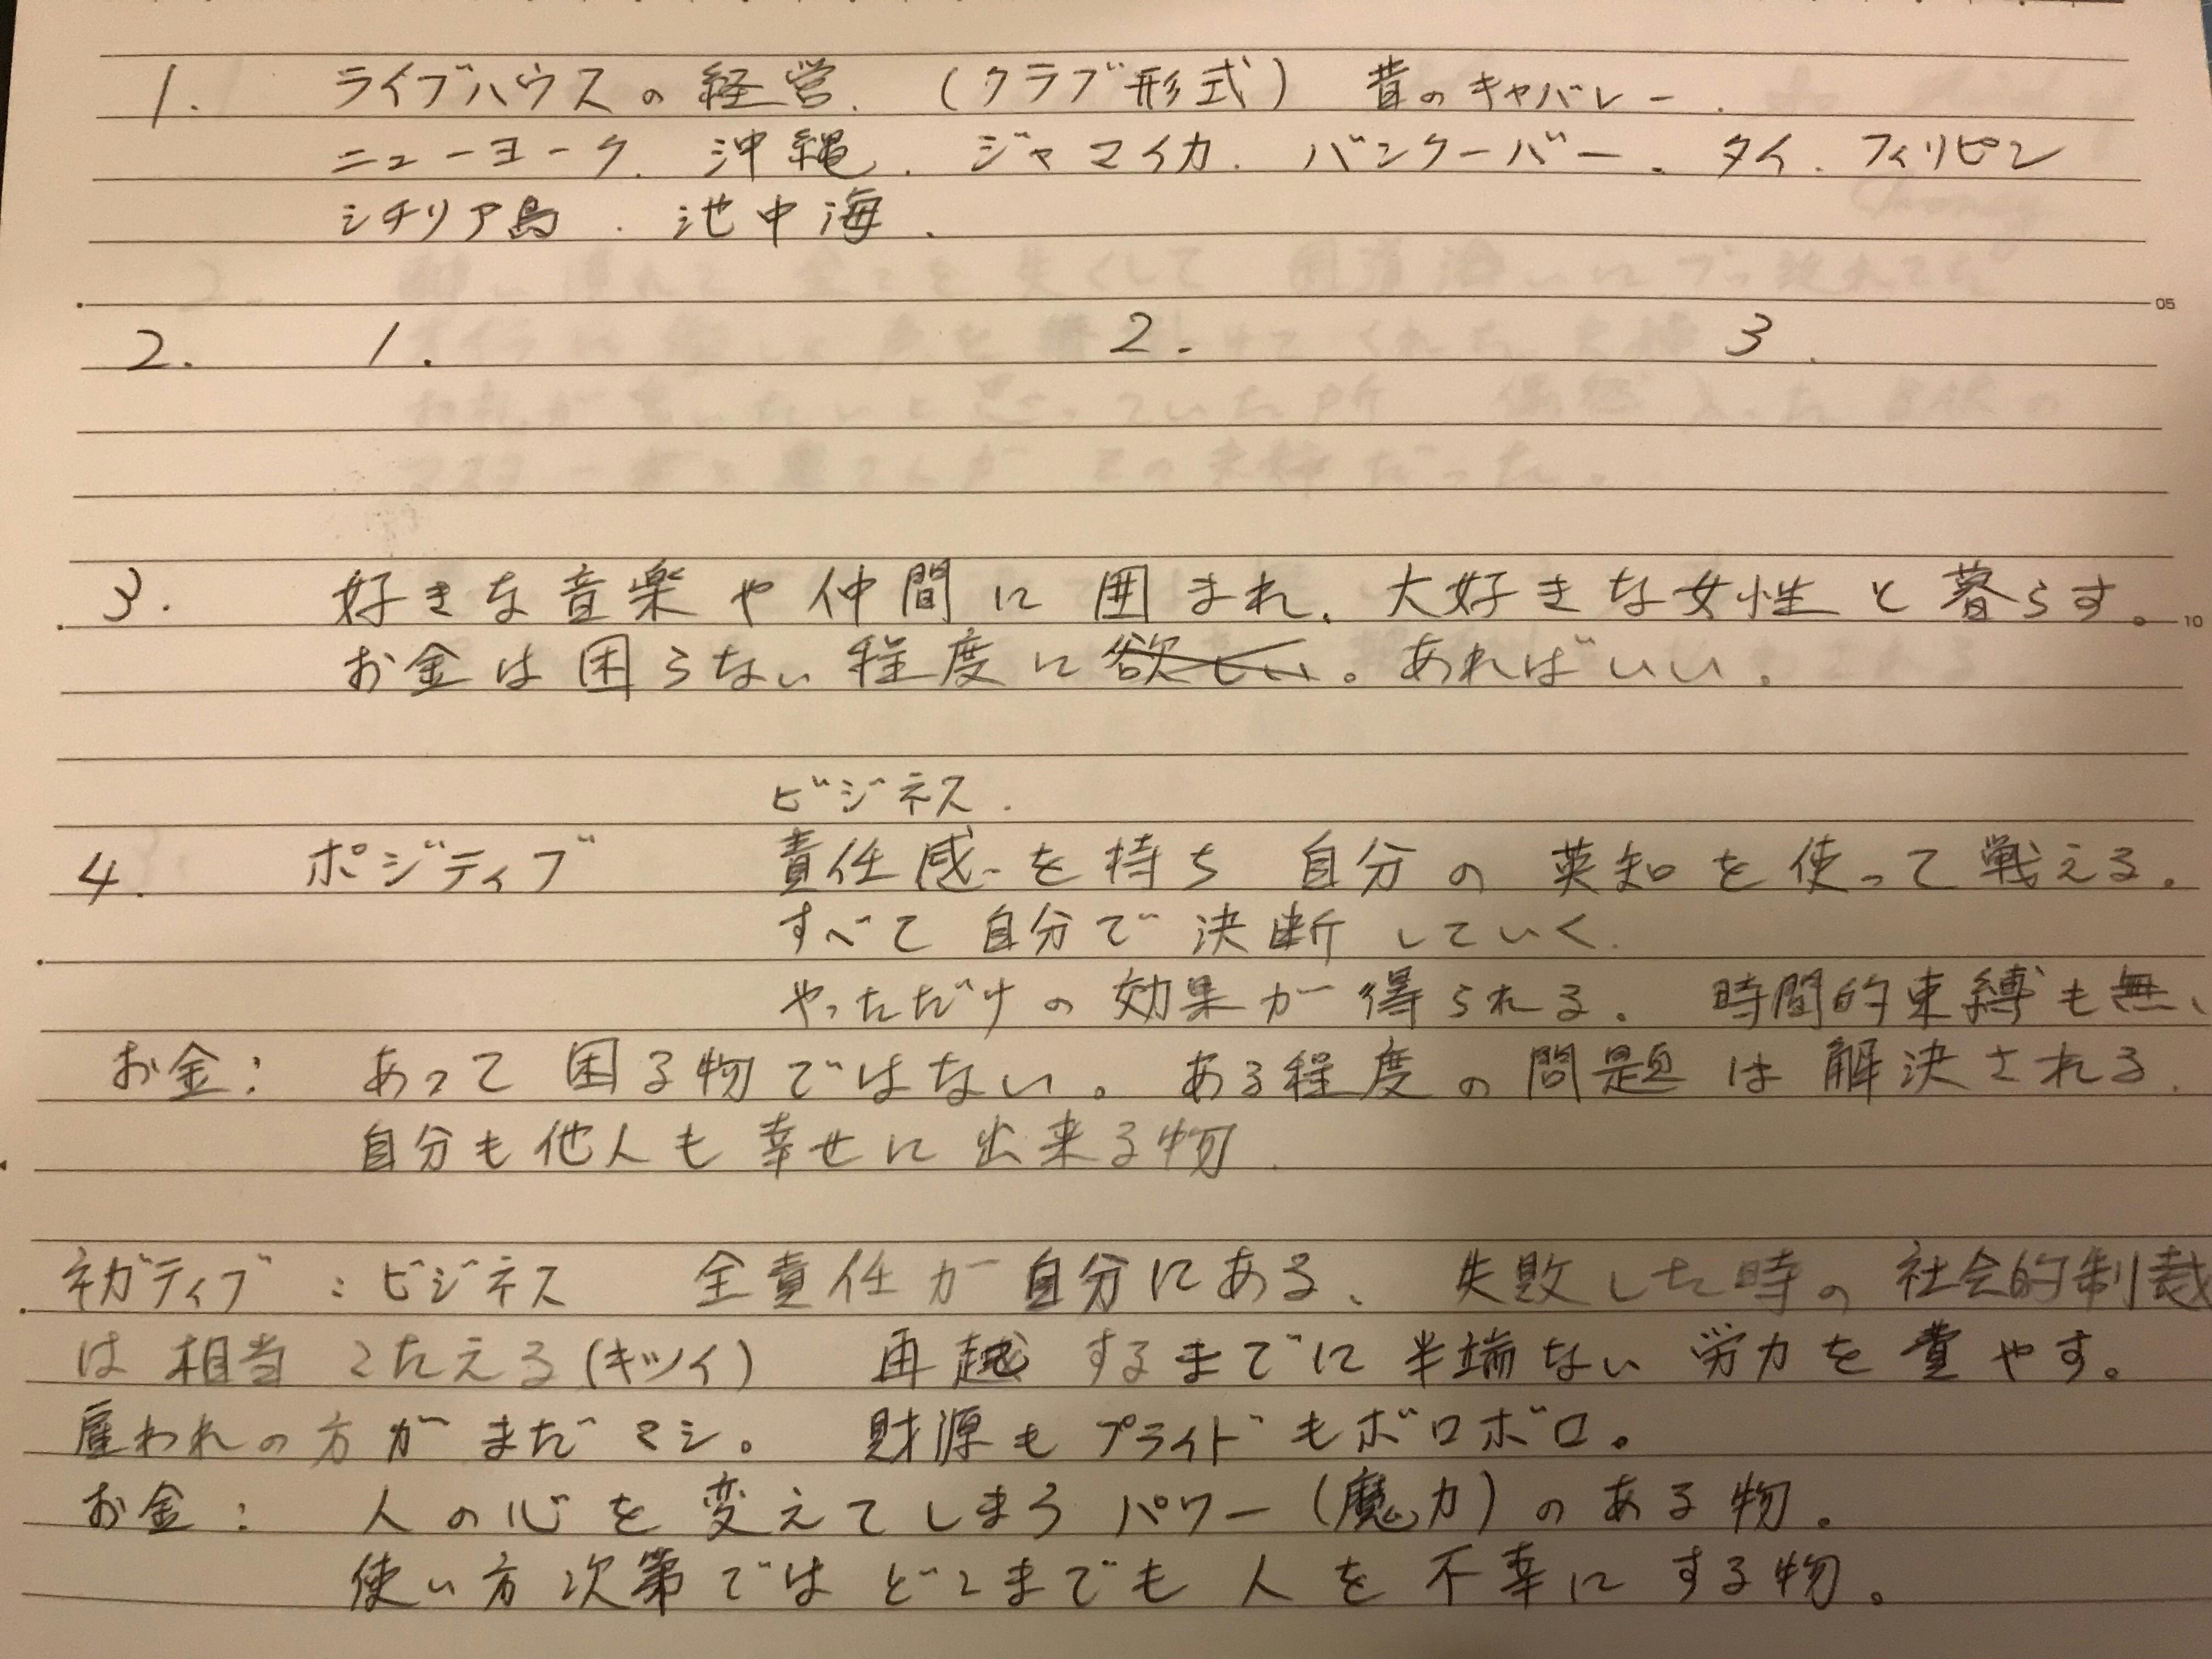 1. ライブハウスの経営. (クラブ形式) 昔のキャバレー.
ニューヨーク. 沖縄. ジャマイカ. バンクーバー. タイ. フィリピン
シチリア島. 池中海.
05
2. 1. 2. 3.
3. 好きな音楽や仲間に囲まれ、大好きな女性と暮らす。
10
お金は困らない程度に欲しい。あればいい。
ビジネス.
4. ポジティブ 責任感を持ち 自分の英知を使って戦える。
すべて自分で決断していく.
やっただけの効果が得られる. 時間的束縛も無、
お金: あって困る物ではない。ある程度の問題は解決される.
自分も他人も幸せに出来る物.
ネガティブ:ビジネス 全責任が自分にある、失敗した時の社会的制裁
は相当こたえる(キツイ) 再起するまでに半端ない労力を費やす。
雇われの方がまだマシ。財源もプライドもボロボロ。
お金: 人の心を変えてしまうパワー(魔力)のある物。
使い方次第ではどこまでも人を不幸にする物。